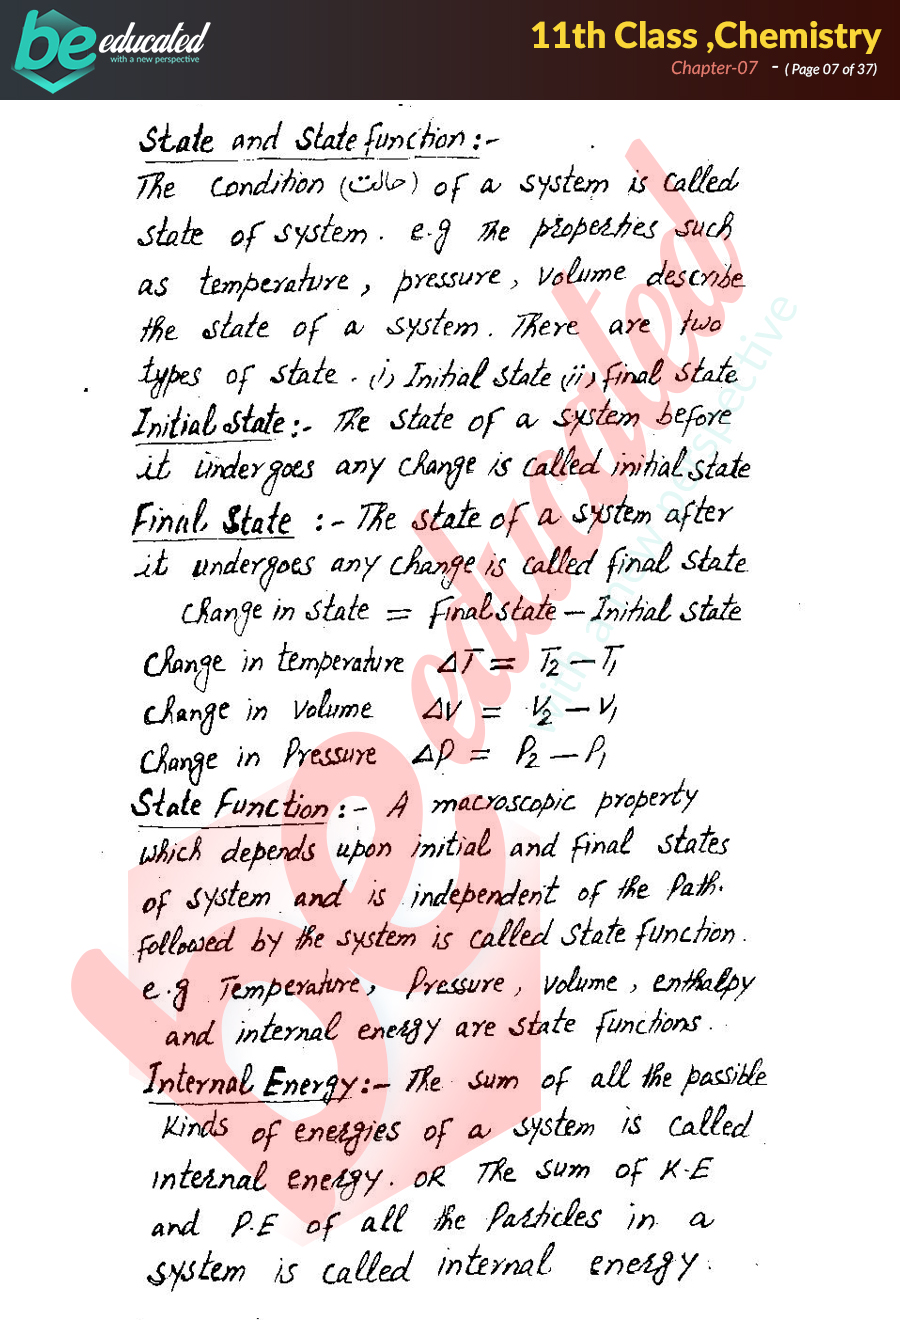 be educated
with a new perspective
11th Class ,Chemistry
Chapter-07 - ( Page 07 of 37)
State and State function :-
The Condition (حالت) of a system is called
state of system. e.g The properties such
as temperature, pressure, volume describe
the state of a system. There are two
types of state. (i) Initial state (ii) final state
Initial state :- The state of a system before
it undergoes any change is called initial state
Final State :- The state of a system after
it undergoes any change is called final state
Change in state = Final state – Initial state
Change in temperature ΔT = T₂ – T₁
Change in volume ΔV = V₂ – V₁
Change in Pressure ΔP = P₂ – P₁
State Function :- A macroscopic property
which depends upon initial and final states
of system and is independent of the Path.
followed by the system is called State function.
e.g Temperature, Pressure, volume, enthalpy
and internal energy are state functions.
Internal Energy :- The sum of all the possible
kinds of energies of a system is called
internal energy. OR The sum of K-E
and P.E of all the Particles in a
system is called internal energy.
be educated
with a new perspective